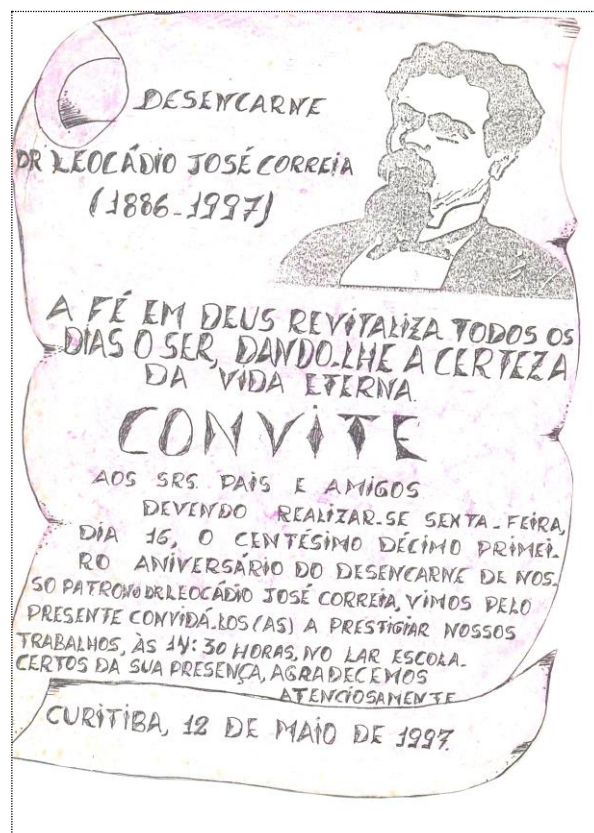 DESENCARNE
DR LEOCÁDIO JOSÉ CORREIA
(1886-1997)
A FÉ EM DEUS REVITALIZA TODOS OS
DIAS O SER, DANDO-LHE A CERTEZA
DA VIDA ETERNA.
CONVITE
AOS SRS. PAIS E AMIGOS
DEVENDO REALIZAR-SE SEXTA-FEIRA,
DIA 16, O CENTÉSIMO DÉCIMO PRIMEI-
RO ANIVERSÁRIO DO DESENCARNE DE NOS-
SO PATRONO DR LEOCÁDIO JOSÉ CORREIA, VIMOS PELO
PRESENTE CONVIDÁ-LOS (AS) A PRESTIGIAR NOSSOS
TRABALHOS, ÀS 14:30 HORAS, NO LAR ESCOLA.
CERTOS DA SUA PRESENÇA, AGRADECEMOS
ATENCIOSAMENTE
CURITIBA, 12 DE MAIO DE 1997.